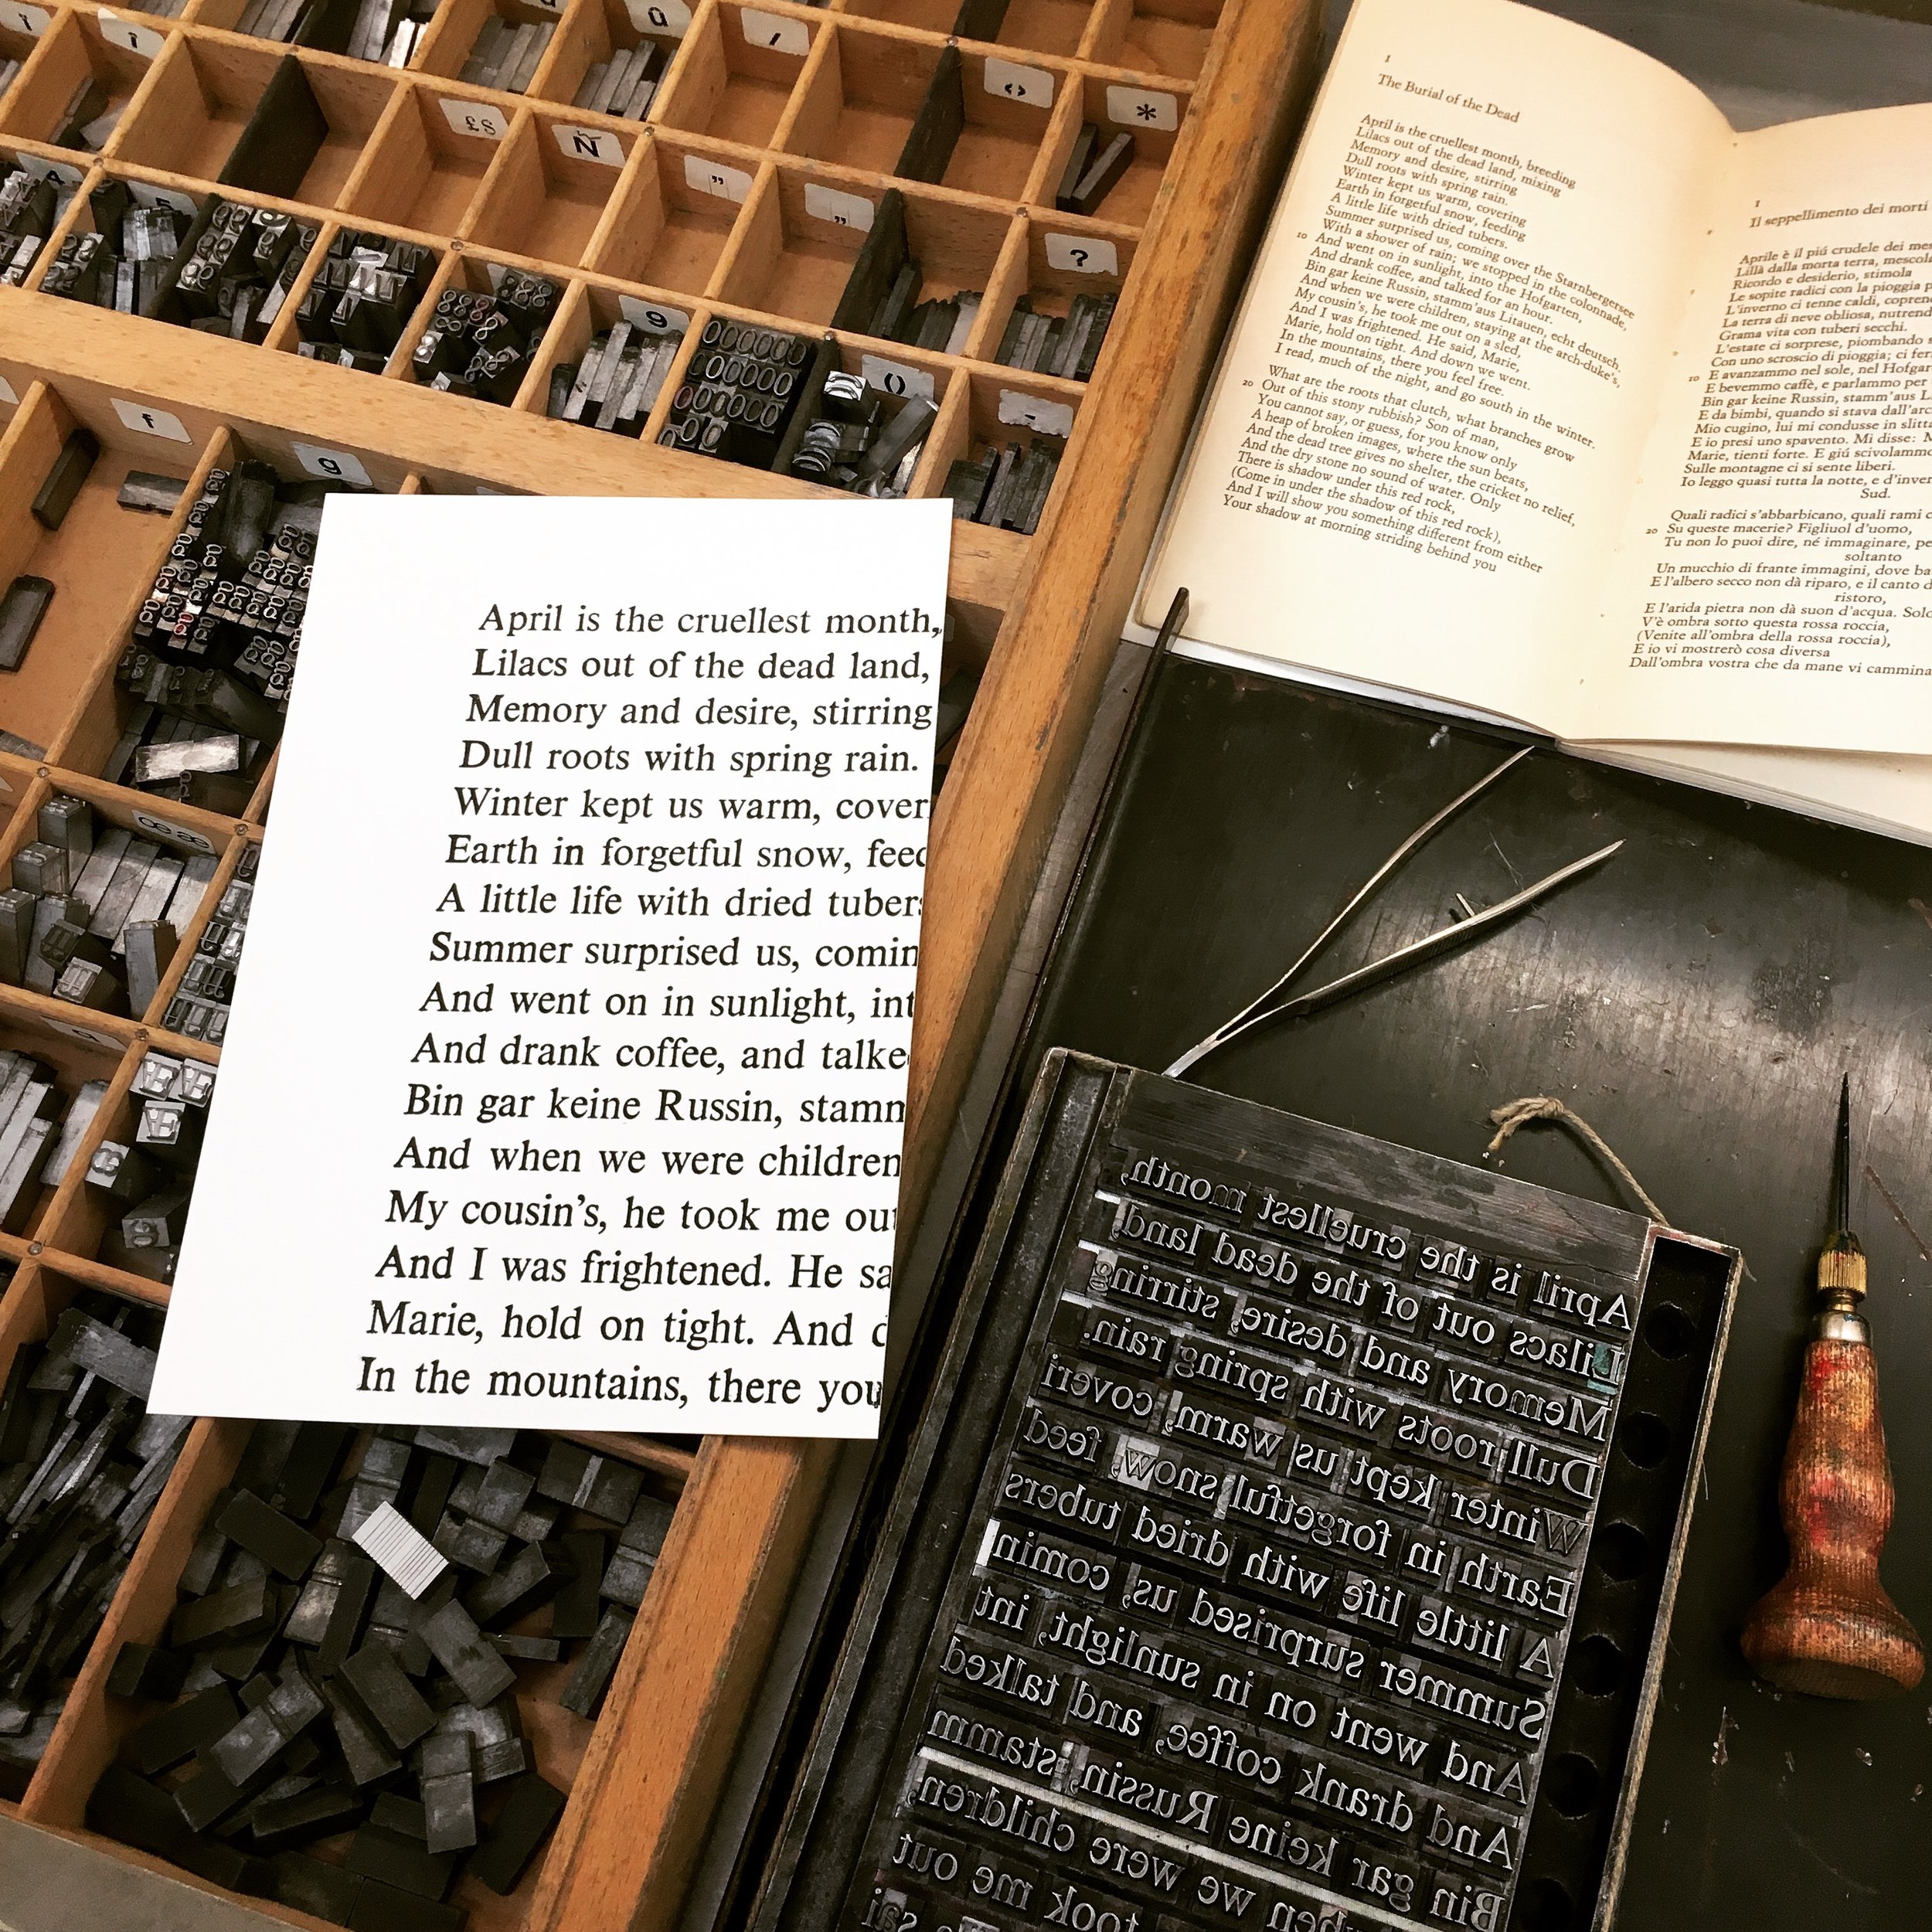 f
g
£$
Ñ
”
„
‹›
*
?
9
()
-
œ æ
April is the cruellest month,
Lilacs out of the dead land,
Memory and desire, stirring
Dull roots with spring rain.
Winter kept us warm, cover
Earth in forgetful snow, feed
A little life with dried tubers
Summer surprised us, comin
And went on in sunlight, int
And drank coffee, and talke
Bin gar keine Russin, stamm
And when we were children
My cousin’s, he took me out
And I was frightened. He sa
Marie, hold on tight. And d
In the mountains, there you
1
The Burial of the Dead
April is the cruellest month, breeding
Lilacs out of the dead land, mixing
Memory and desire, stirring
Dull roots with spring rain.
Winter kept us warm, covering
Earth in forgetful snow, feeding
A little life with dried tubers.
Summer surprised us, coming over the Starnbergersee
With a shower of rain; we stopped in the colonnade,
10 And went on in sunlight, into the Hofgarten,
And drank coffee, and talked for an hour.
Bin gar keine Russin, stamm'aus Litauen, echt deutsch.
And when we were children, staying at the arch-duke's,
My cousin's, he took me out on a sled,
And I was frightened. He said, Marie,
Marie, hold on tight. And down we went.
In the mountains, there you feel free.
I read, much of the night, and go south in the winter.
What are the roots that clutch, what branches grow
20 Out of this stony rubbish? Son of man,
You cannot say, or guess, for you know only
A heap of broken images, where the sun beats,
And the dead tree gives no shelter, the cricket no relief,
And the dry stone no sound of water. Only
There is shadow under this red rock,
(Come in under the shadow of this red rock),
And I will show you something different from either
Your shadow at morning striding behind you
1
Il seppellimento dei morti
Aprile è il piú crudele dei me
Lillà dalla morta terra, mescola
Ricordo e desiderio, stimola
Le sopite radici con la pioggia p
L'inverno ci tenne caldi, copren
La terra di neve obliosa, nutrend
Grama vita con tuberi secchi.
L'estate ci sorprese, piombando s
Con uno scroscio di pioggia; ci fer
10 E avanzammo nel sole, nel Hofgar
E bevemmo caffè, e parlammo per
Bin gar keine Russin, stamm'aus L
E da bimbi, quando si stava dall'arc
Mio cugino, lui mi condusse in slitta
E io presi uno spavento. Mi disse: M
Marie, tienti forte. E giú scivolammo
Sulle montagne ci si sente liberi.
Io leggo quasi tutta la notte, e d'inver
Sud.
Quali radici s'abbarbicano, quali rami c
20 Su queste macerie? Figliuol d'uomo,
Tu non lo puoi dire, né immaginare, pe
soltanto
Un mucchio di frante immagini, dove ba
E l'albero secco non dà riparo, e il canto d
ristoro,
E l'arida pietra non dà suon d'acqua. Solo
V'è ombra sotto questa rossa roccia,
(Venite all'ombra della rossa roccia),
E io vi mostrerò cosa diversa
Dall'ombra vostra che da mane vi cammina
April is the cruellest month,
Lilacs out of the dead land,
Memory and desire, stirring
Dull roots with spring rain.
Winter kept us warm, coveri
Earth in forgetful snow, feed
A little life with dried tubers
Summer surprised us, comin
And went on in sunlight, int
And drank coffee, and talked
Bin gar keine Russin, stamm
when we were children,
took me out
sai